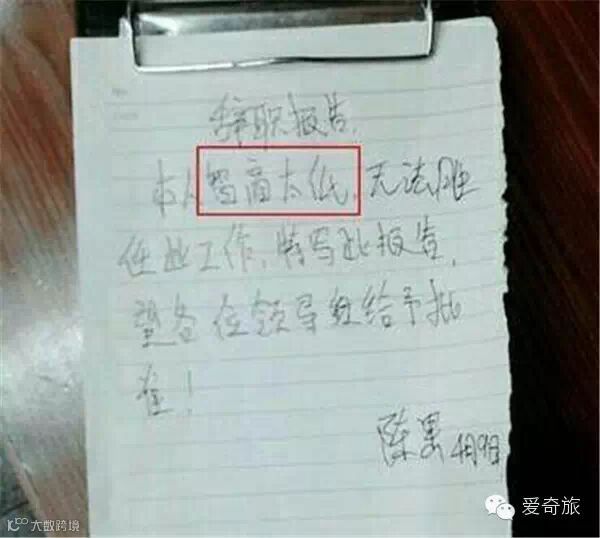 辞职报告,
本人智商太纸,无法胜
任此工作,特写此报告,
望各位领导给予批
准!
陈 4月9日
爱奇旅
大数跨境